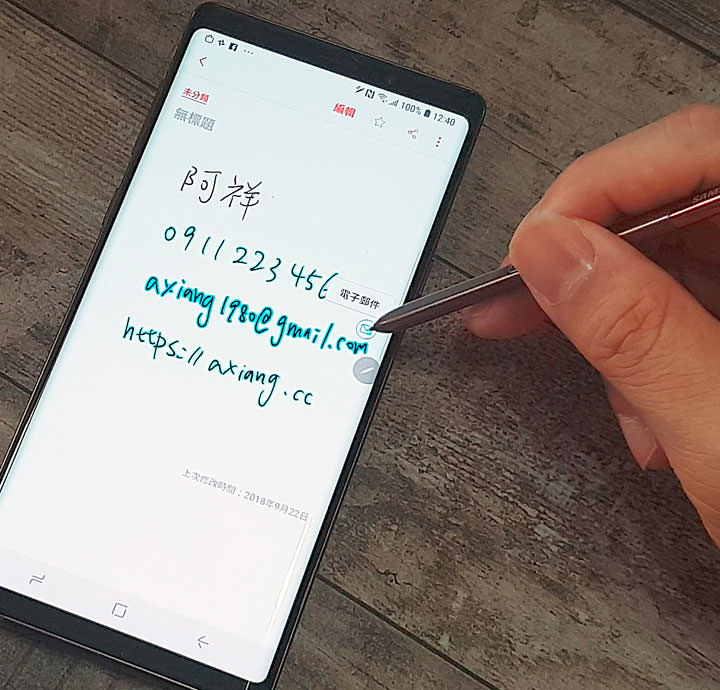 100% 12:40
未分類
編輯
無標題
阿祥
0911 223 456
電子郵件
axiang1980@gmail.com
https://axiang.cc
上次修改時間：2018年9月22日
SAMS